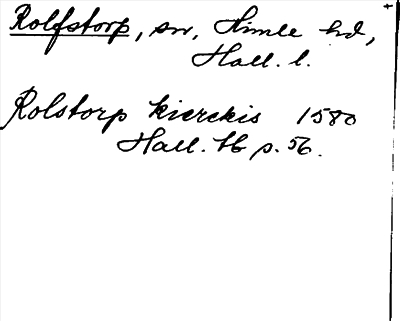 Rolfstorp, sn, Himle hd,
Hall. l.
Rolstorp kierckis 1580
Hall. tb p. 56.